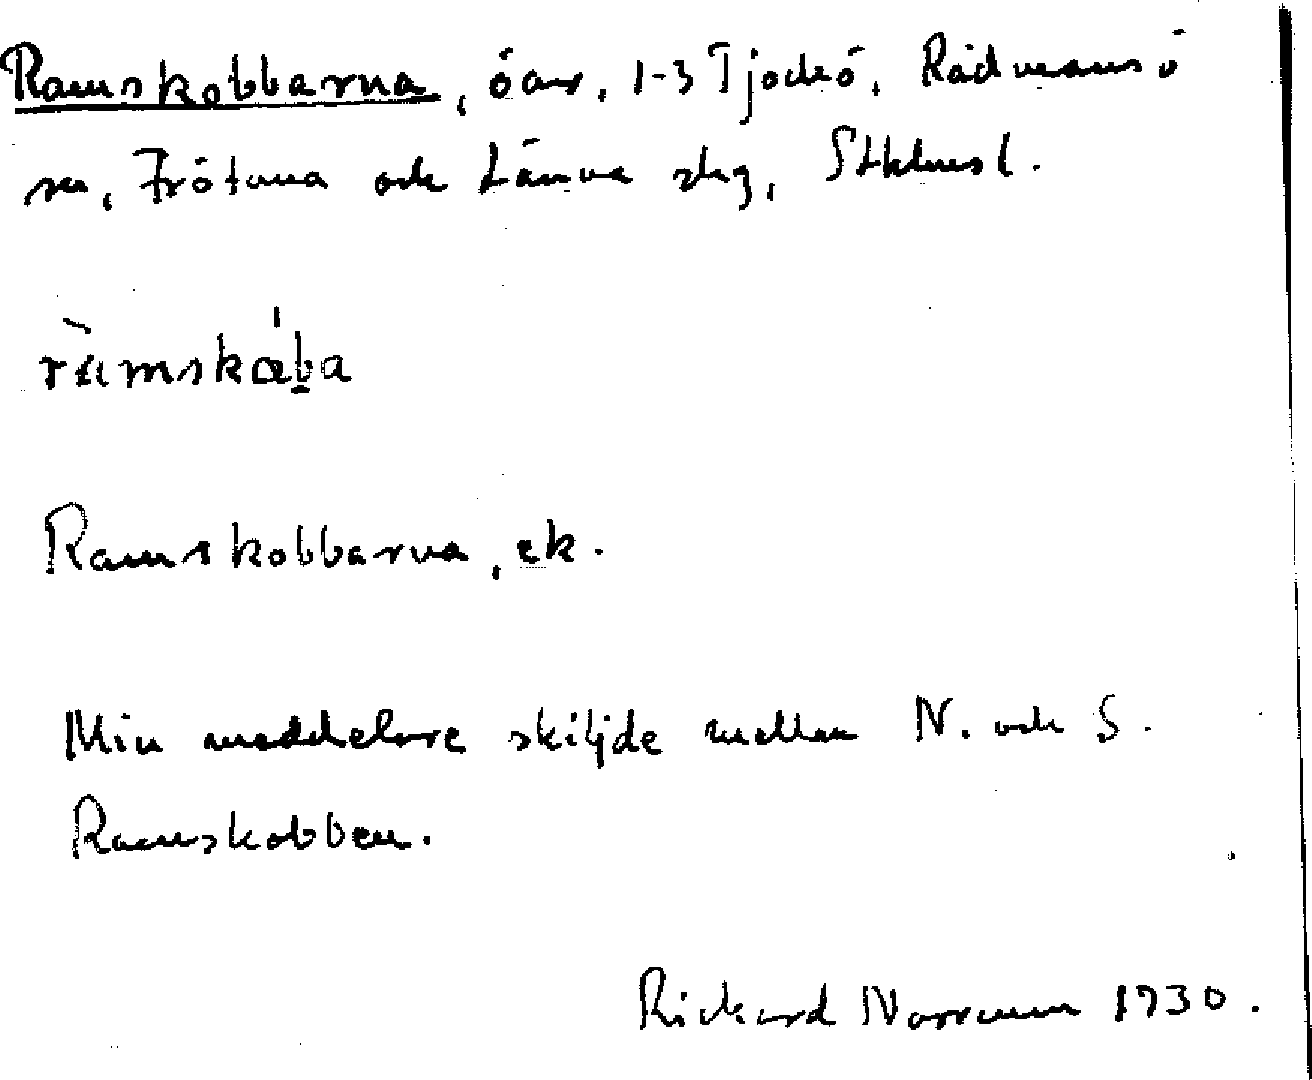 Ramskobbarna, öar, 1-3 Tjockö, Rådmansö
sn, Frötuna och Länna skg, Sthlms l.
ràmskába
Ramskobbarna, ek.
Min meddelare skiljde mellan N. och S.
Ramskobben.
Rickard Norrman 1930.